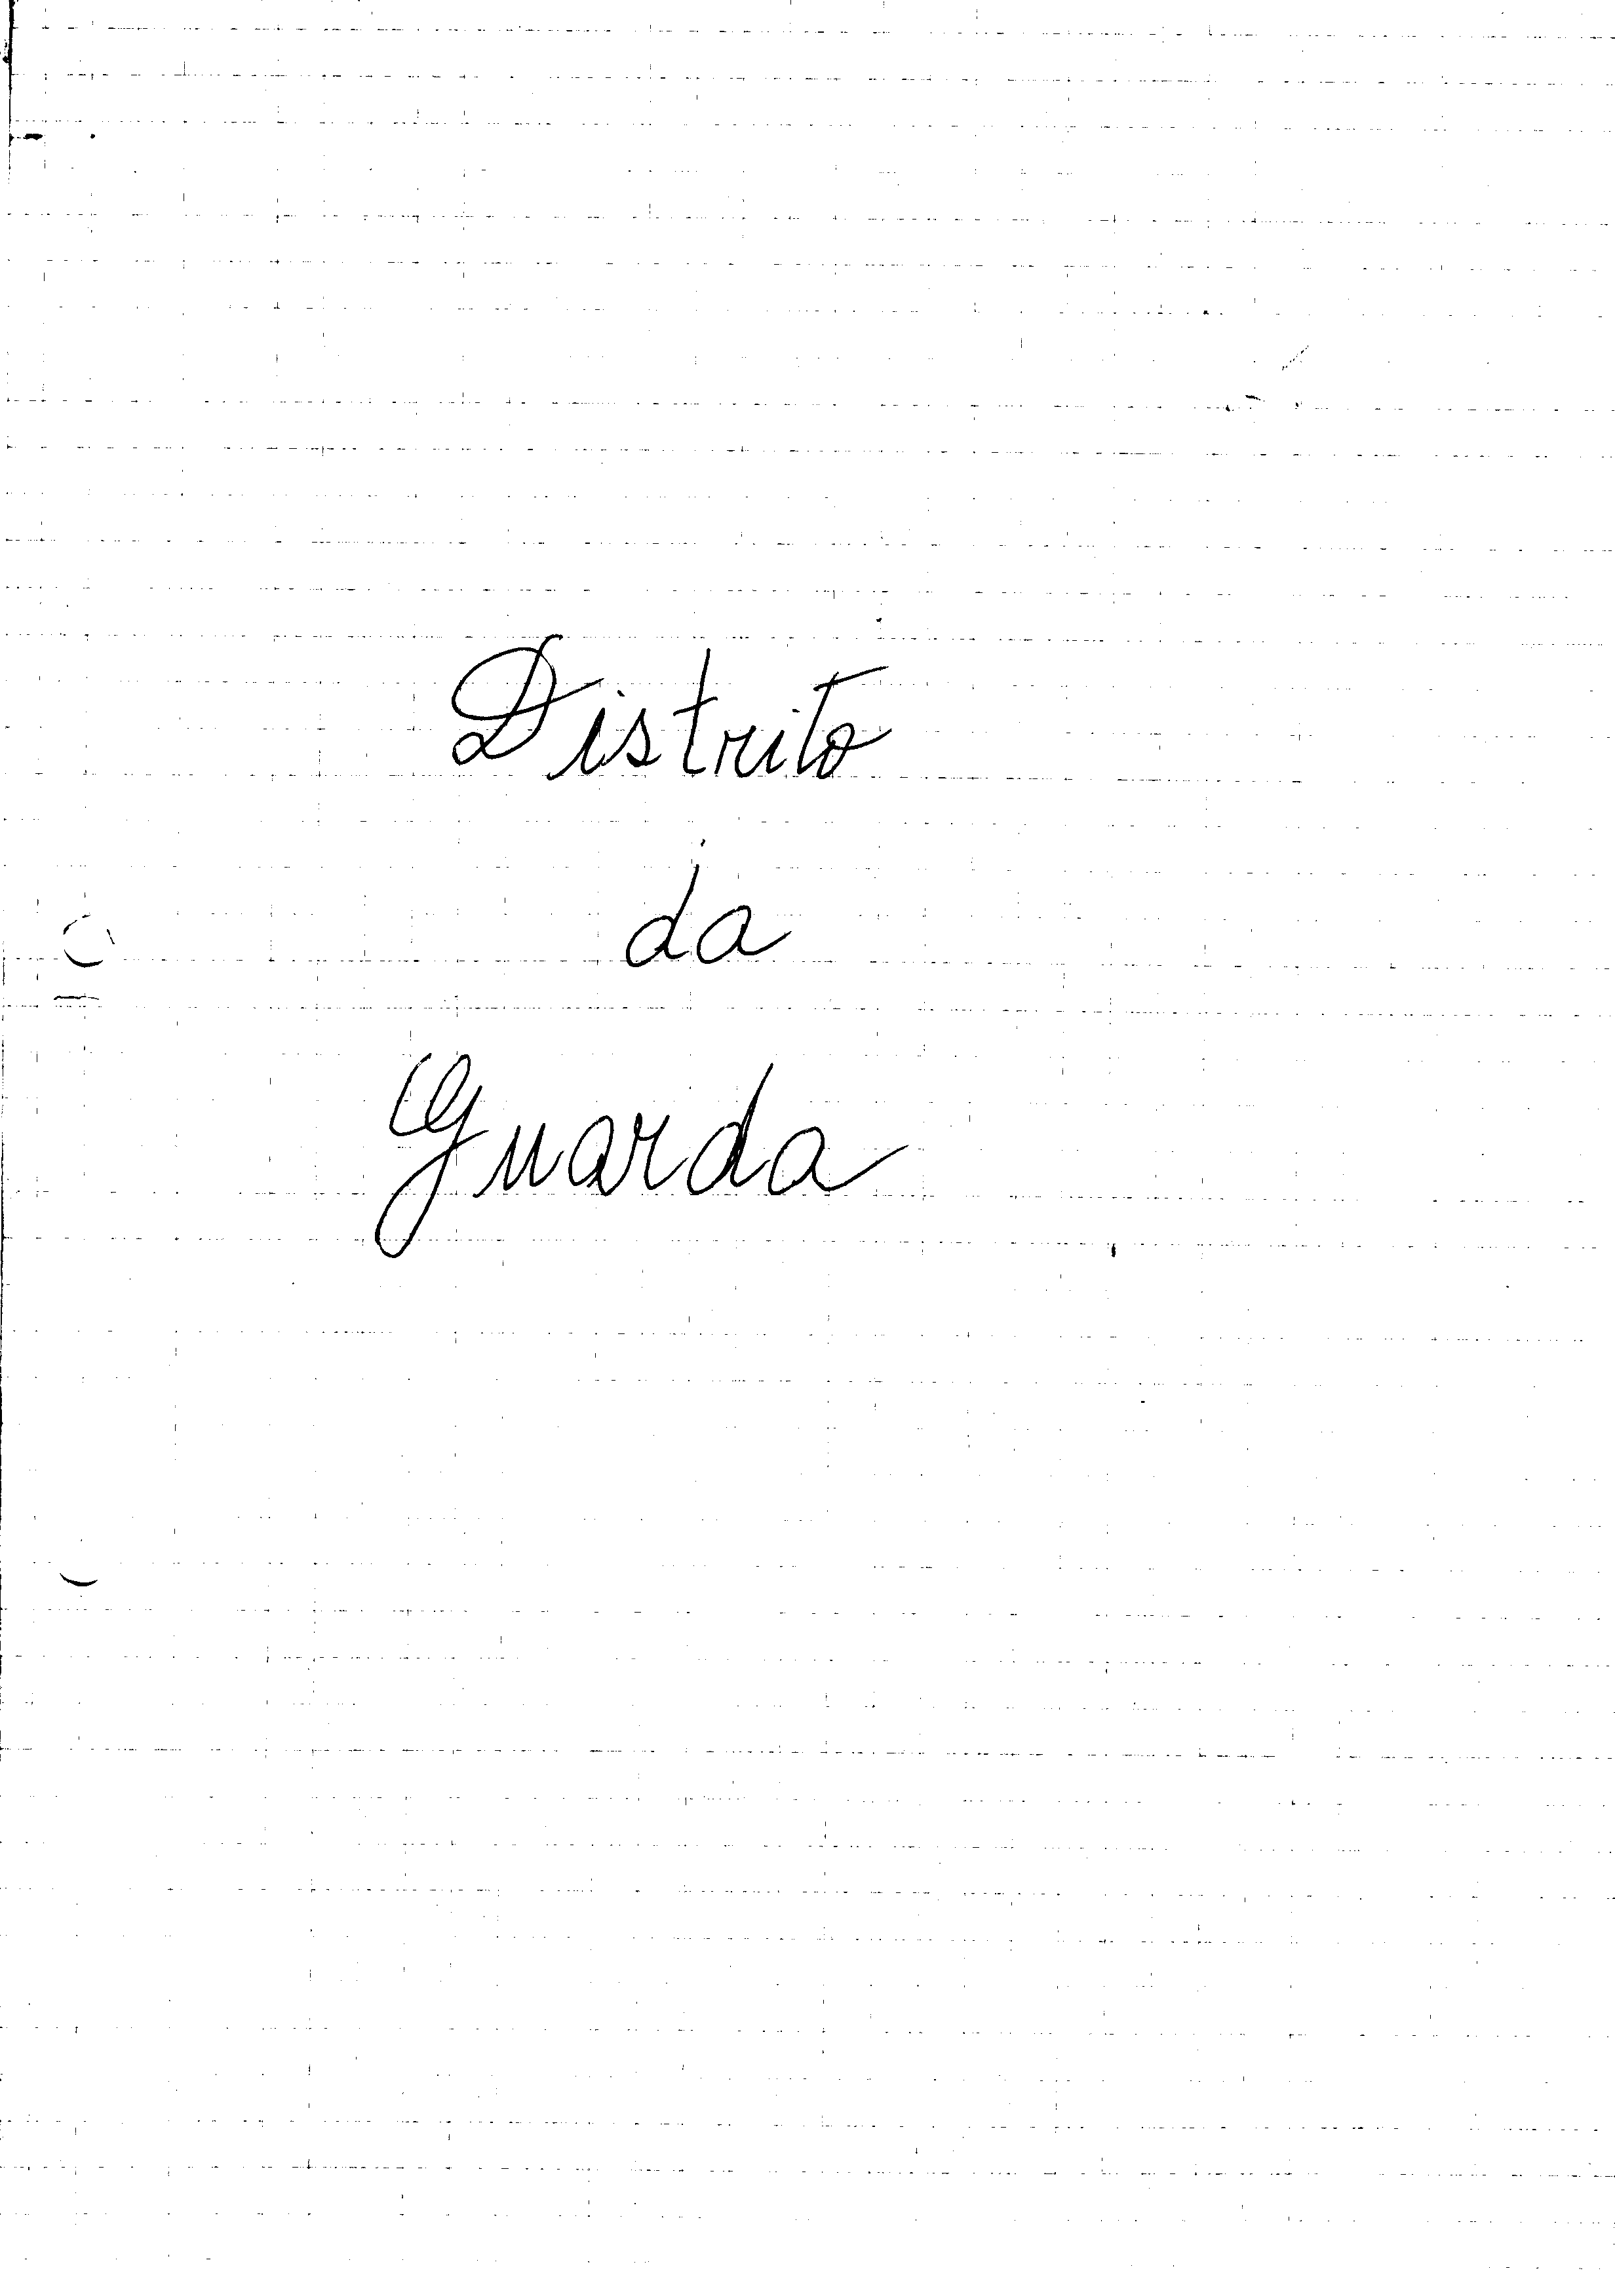 Distrito
da
Guarda